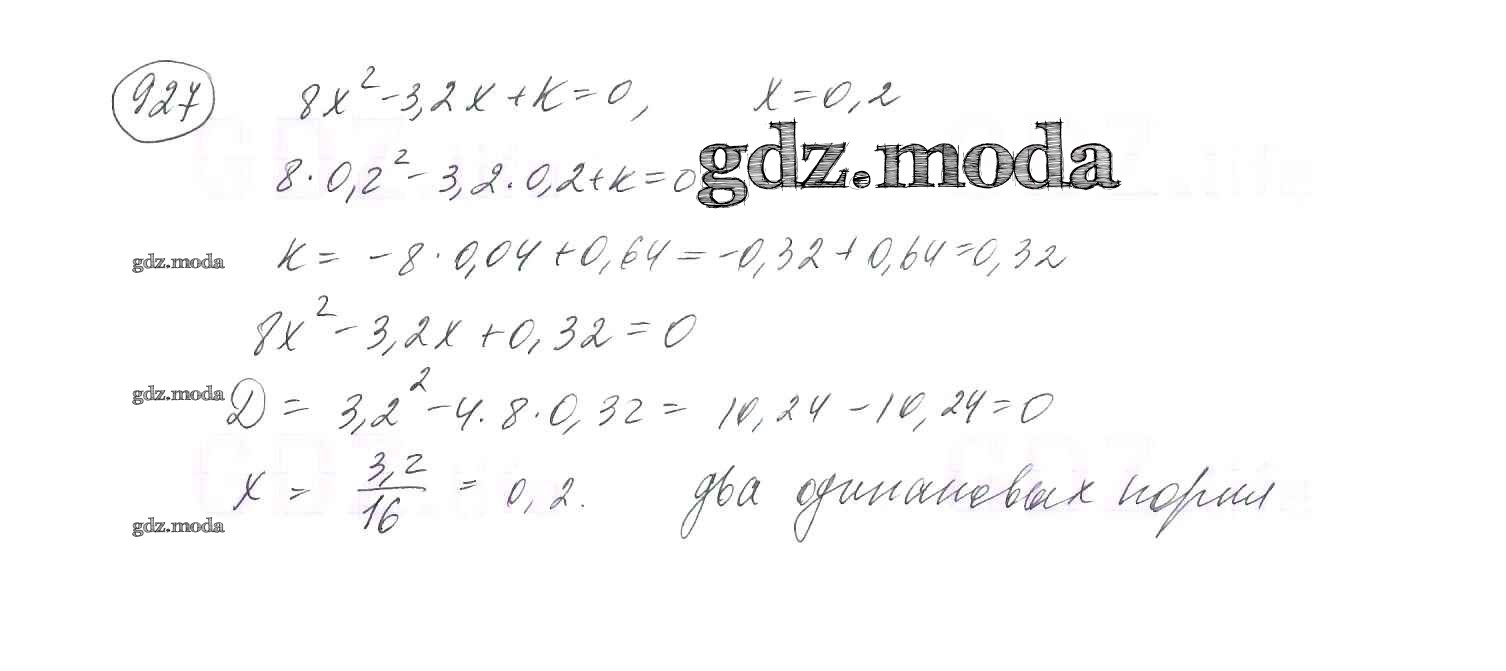 927 8x² - 3,2x + к = 0, x = 0,2
8 · 0,2² - 3,2 · 0,2 + к = 0 gdz.moda
gdz.moda к = - 8 · 0,04 + 0,64 = - 0,32 + 0,64 = 0,32
8x² - 3,2x + 0,32 = 0
gdz.moda D = 3,2² - 4 · 8 · 0,32 = 10,24 - 10,24 = 0
x = 3,2/16 = 0,2. два одинаковых корня
gdz.moda